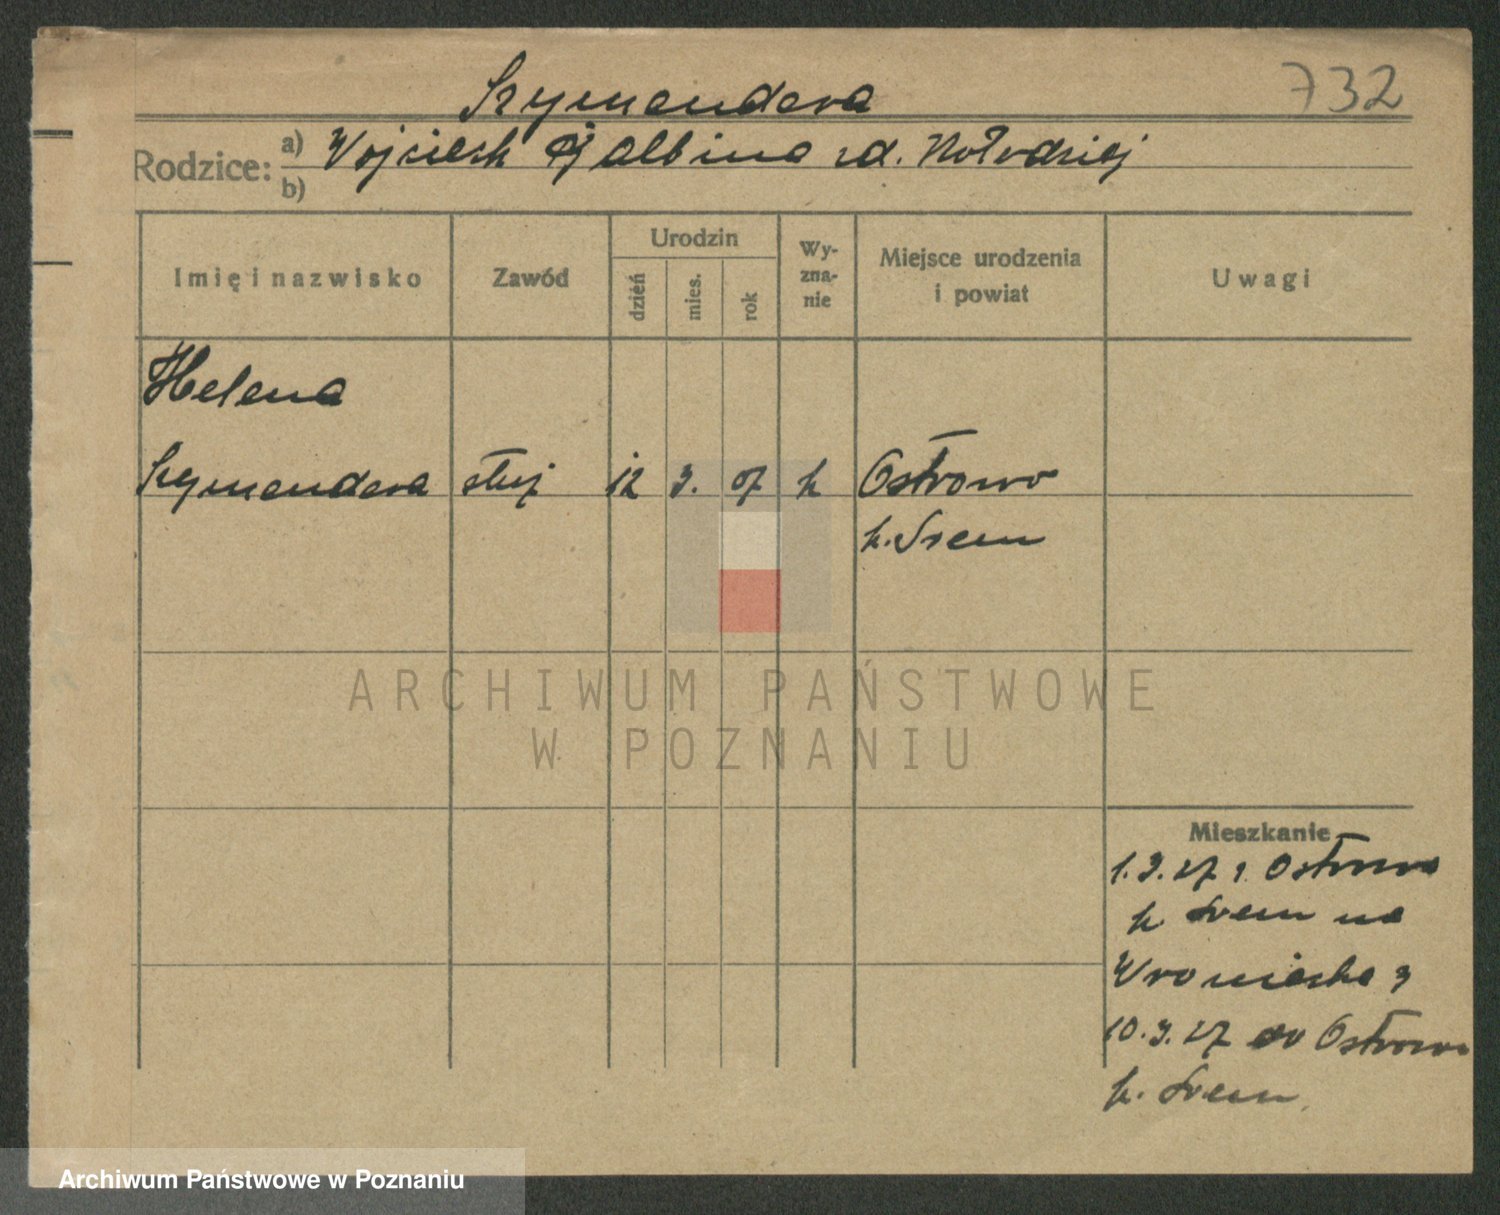 732
Szymendera
Rodzice: a) Wojciech Albina zd. Kołodziej
b)
Imię i nazwisko
Zawód
Urodzin
dzień
mies.
rok
Wy-
zna-
nie
Miejsce urodzenia
i powiat
Uwagi
Helena
Szymendera służ 12 3. 07 k Ostrowo
k. Śrem
ARCHIWUM PAŃSTWOWE
W POZNANIU
Mieszkanie
1.3.27 z Ostrowo
k Śrem na
Wroniecka 3
10.3.27 do Ostrowo
k. Śrem.
Archiwum Państwowe w Poznaniu